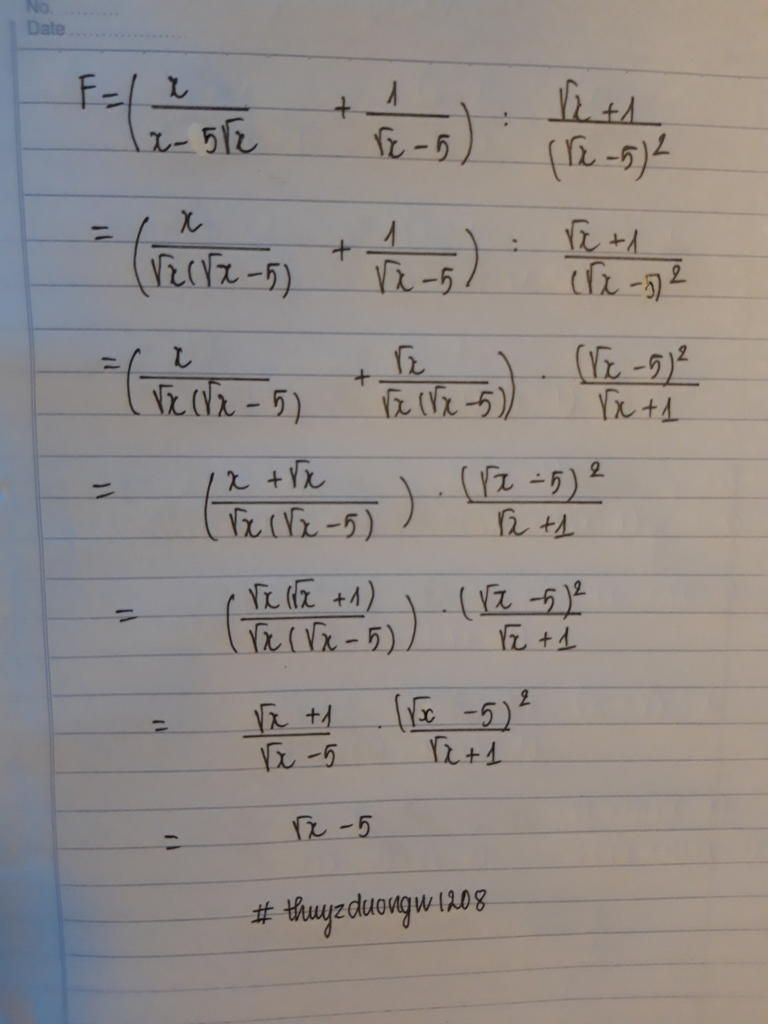 No. ............
Date ....................
F = ( x / (x - 5√x) + 1 / (√x - 5) ) : (√x + 1) / (√x - 5)²
= ( x / (√x(√x - 5)) + 1 / (√x - 5) ) : (√x + 1) / (√x - 5)²
= ( x / (√x(√x - 5)) + √x / (√x(√x - 5)) ) . (√x - 5)² / (√x + 1)
= ( (x + √x) / (√x(√x - 5)) ) . (√x - 5)² / (√x + 1)
= ( √x(√x + 1) / (√x(√x - 5)) ) . (√x - 5)² / (√x + 1)
= (√x + 1) / (√x - 5) . (√x - 5)² / (√x + 1)
= √x - 5
# thuyzduongw1208